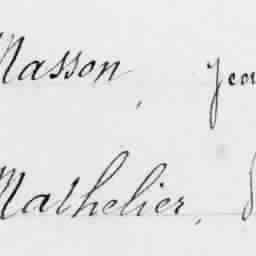 Masson, Jea
Mathelier,